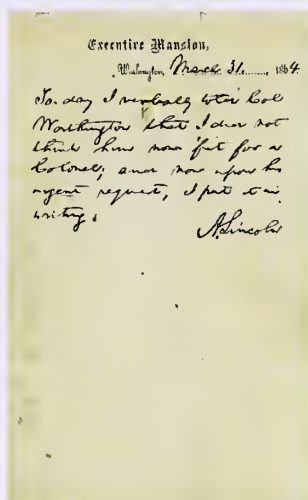 Executive Mansion,
Washington, March 31, 1864.
To-day I verbally told Col
Worthington that I did not
think him now fit for a
Colonel; and now upon his
urgent request, I put it in
writing.
A. Lincoln